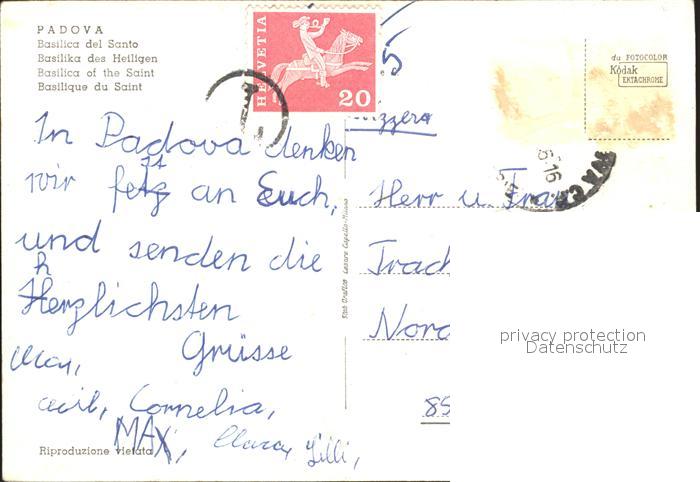 PADOVA
Basilica del Santo
Basilika des Heiligen
Basilica of the Saint
Basilique du Saint
HELVETIA
20
5
du FOTOCOLOR
Kodak
EKTACHROME
In Padova denken
wir fest an Euch,
und senden die
herzlichsten
Grüsse
Max,
Cornelia,
MAX, Clara, Lilli,
Riproduzione vietata
Herr u. Frau
Trach
Nord
85
privacy protection
Datenschutz